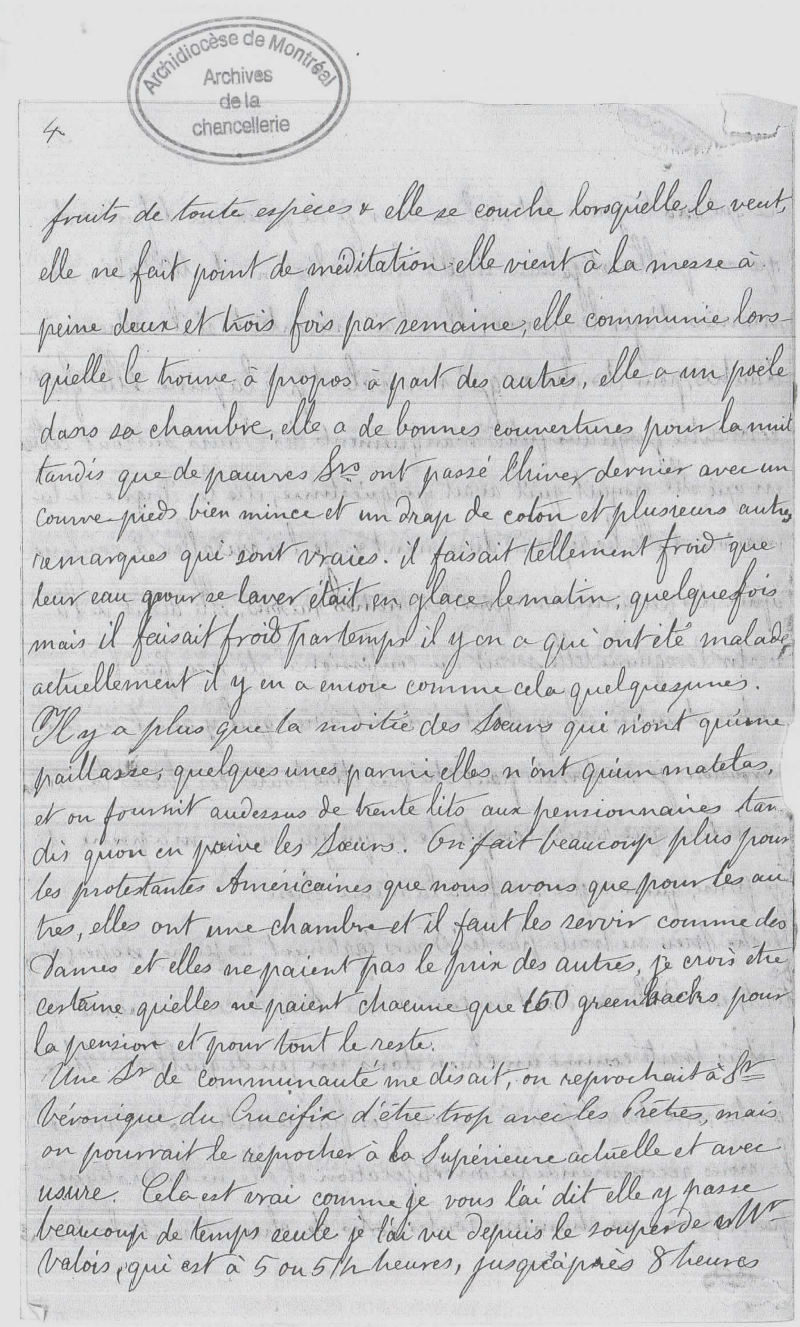 Archidiocèse de Montréal
Archives
de la
chancellerie
4
fruits de toute espèces & elle se couche lorsqu'elle le veut,
elle ne fait point de méditation elle vient à la messe à
peine deux et trois fois par semaine, elle communie lors-
qu'elle le trouve à propos à part des autres, elle a un poële
dans sa chambre, elle a de bonnes couvertures pour la nuit
tandis que de pauvres Srs ont passé l'hiver dernier avec un
couvre-pieds bien mince et un drap de coton et plusieurs autres
remarques qui sont vraies. il faisait tellement froid que
leur eau pour se laver était en glace le matin, quelquefois
mais il faisait froid par temps il y en a qui ont été malade,
actuellement il y en a encore comme cela quelquesunes.
Il y a plus que la moitié des Soeurs qui n'ont qu'une
paillasse, quelques unes parmi elles n'ont qu'un matelas,
et on fournit audessus de trente lits aux pensionnaires tan
dis qu'on en prive les Soeurs. On fait beaucoup plus pour
les protestantes Américaines que nous avons que pour les au
tres, elles ont une chambre et il faut les servir comme des
Dames et elles ne paient pas le prix des autres, je crois être
certaine qu'elles ne paient chacune que 160 greenbacks pour
la pension et pour tout le reste.
Une Sr de communauté me disait, on reprochait à Sr
Véronique du Crucifix d'être trop avec les Prêtres, mais
on pourrait le reprocher à la Supérieure actuelle et avec
usure. Cela est vrai comme je vous l'ai dit elle y passe
beaucoup de temps seule je l'ai vu depuis le souper de Mr
Valois, qui est à 5 ou 5½ heures, jusqu'après 8 heures